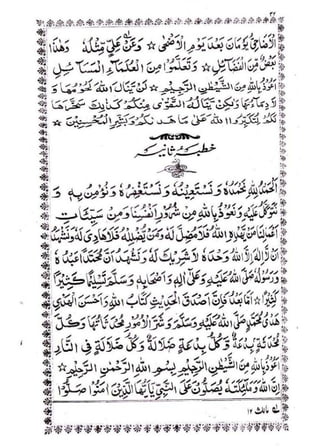 ٢٢
الْاَضَاحِيْ يَوْمَانِ بَعْدَ يَوْمِ الْاَضْحٰى ☆ وَعَنْ عَلِيٍّ مِثْلُهٗ وَهٰذَا
بَعْضٌ مِّنَ الْفَضَآئِلِ ☆ وَتَعَلَّمُوْا مِنَ الْعُلَمَآءِ الْمَسَآئِلَ
اَعُوْذُ بِاللّٰهِ مِنَ الشَّيْطٰنِ الرَّجِيْمِ ☆ لَنْ يَّنَالَ اللّٰهَ لُحُوْمُهَا وَ
لَا دِمَآؤُهَا وَلٰكِنْ يَّنَالُهُ التَّقْوٰى مِنْكُمْ كَذٰلِكَ سَخَّرَهَا
لَكُمْ لِتُكَبِّرُوا اللّٰهَ عَلٰى مَا هَدٰىكُمْ وَبَشِّرِ الْمُحْسِنِيْنَ ☆
خطبہ ثانیہ
اَلْحَمْدُ لِلّٰهِ نَحْمَدُهٗ وَنَسْتَعِيْنُهٗ وَنَسْتَغْفِرُهٗ وَنُؤْمِنُ بِهٖ وَ
نَتَوَكَّلُ عَلَيْهِ وَنَعُوْذُ بِاللّٰهِ مِنْ شُرُوْرِ اَنْفُسِنَا وَمِنْ سَيِّئَاتِ
اَعْمَالِنَا مَنْ يَّهْدِهِ اللّٰهُ فَلَا مُضِلَّ لَهٗ وَمَنْ يُّضْلِلْهُ فَلَا هَادِيَ لَهٗ وَنَشْهَدُ
اَنْ لَّا اِلٰهَ اِلَّا اللّٰهُ وَحْدَهٗ لَا شَرِيْكَ لَهٗ وَنَشْهَدُ اَنَّ مُحَمَّدًا عَبْدُهٗ
وَرَسُوْلُهٗ صَلَّى اللّٰهُ عَلَيْهِ وَعَلٰى اٰلِهٖ وَاَصْحَابِهٖ وَسَلَّمَ تَسْلِيْمًا كَثِيْرًا
كَثِيْرًا ☆ اَمَّا بَعْدُ فَاِنَّ اَصْدَقَ الْحَدِيْثِ كِتَابُ اللّٰهِ وَاَحْسَنَ الْهَدْيِ
هَدْيُ مُحَمَّدٍ صَلَّى اللّٰهُ عَلَيْهِ وَسَلَّمَ وَشَرَّ الْاُمُوْرِ مُحْدَثَاتُهَا وَكُلَّ
مُحْدَثَةٍ بِدْعَةٌ وَكُلَّ بِدْعَةٍ ضَلَالَةٌ وَكُلَّ ضَلَالَةٍ فِي النَّارِ
اَعُوْذُ بِاللّٰهِ مِنَ الشَّيْطٰنِ الرَّجِيْمِ بِسْمِ اللّٰهِ الرَّحْمٰنِ الرَّحِيْمِ
اِنَّ اللّٰهَ وَمَلٰٓئِكَتَهٗ يُصَلُّوْنَ عَلَى النَّبِيِّ يٰٓاَيُّهَا الَّذِيْنَ اٰمَنُوْا صَلُّوْا
مالك ١٢